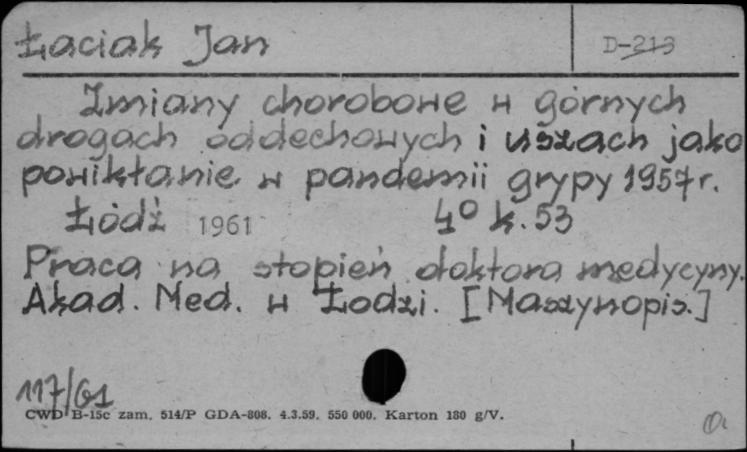 Łaciak Jan D-213
Zmiany chorobowe w górnych
drogach oddechowych i uszach jako
powikłanie w pandemii grypy 1957 r.
Łódź 1961 4° k. 53
Praca na stopień doktora medycyny.
Akad. Med. w Łodzi. [Maszynopis.]
117/61
CWD B-15c zam. 514/P GDA-808. 4.3.59. 550 000. Karton 180 g/V.